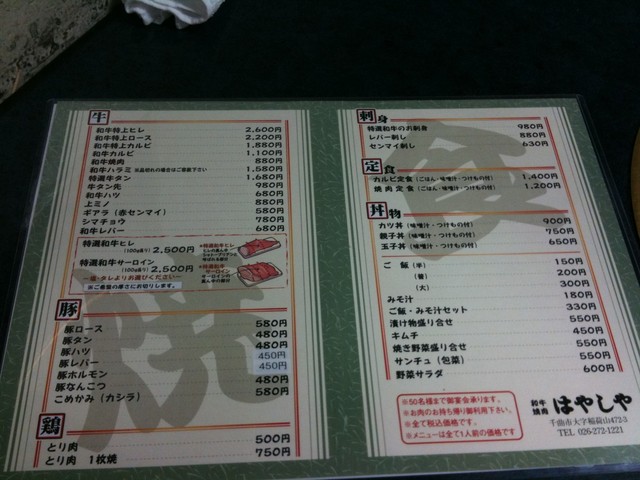 牛
和牛特上ヒレ 2,600円
和牛特上ロース 2,200円
和牛特上カルビ 1,880円
和牛カルビ 1,100円
和牛焼肉 880円
和牛ハラミ ※品切れの場合はご容赦下さい 1,680円
特選牛タン 1,680円
牛タン先 980円
和牛ハツ 680円
上ミノ 880円
ギアラ(赤センマイ) 580円
シマチョウ 780円
和牛レバー 680円
特選和牛ヒレ
(100g当り) 2,500円
特選和牛サーロイン
(100g当り) 2,500円
―塩・タレよりお選びください―
※ご希望の厚さにお切りします。
★特選和牛ヒレ
★特選和牛
サーロイン
豚
豚ロース 580円
豚タン 480円
豚ハツ 480円
豚レバー 450円
豚ホルモン 450円
豚なんこつ 480円
こめかみ(カシラ) 580円
鶏
とり肉 500円
とり肉 1枚焼 750円
刺身
特選和牛のお刺身 980円
レバー刺し 880円
センマイ刺し 630円
定食
カルビ定食(ごはん・味噌汁・つけもの付) 1,400円
焼肉定食(ごはん・味噌汁・つけもの付) 1,200円
丼物
カツ丼(味噌汁・つけもの付) 900円
親子丼(味噌汁・つけもの付) 750円
玉子丼(味噌汁・つけもの付) 650円
ご飯(半) 150円
(普) 200円
(大) 300円
みそ汁 180円
ご飯・みそ汁セット 330円
漬け物盛り合せ 550円
キムチ 450円
焼き野菜盛り合せ 550円
サンチュ(包菜) 550円
野菜サラダ 600円
※50名様まで御宴会承ります。
※お肉のお持ち帰り御利用下さい。
※全て税込価格です
※メニューは全て1人前の価格です
和牛
焼肉 はやしや
千曲市大字稲荷山472-3
TEL 026-272-1221
焼
食